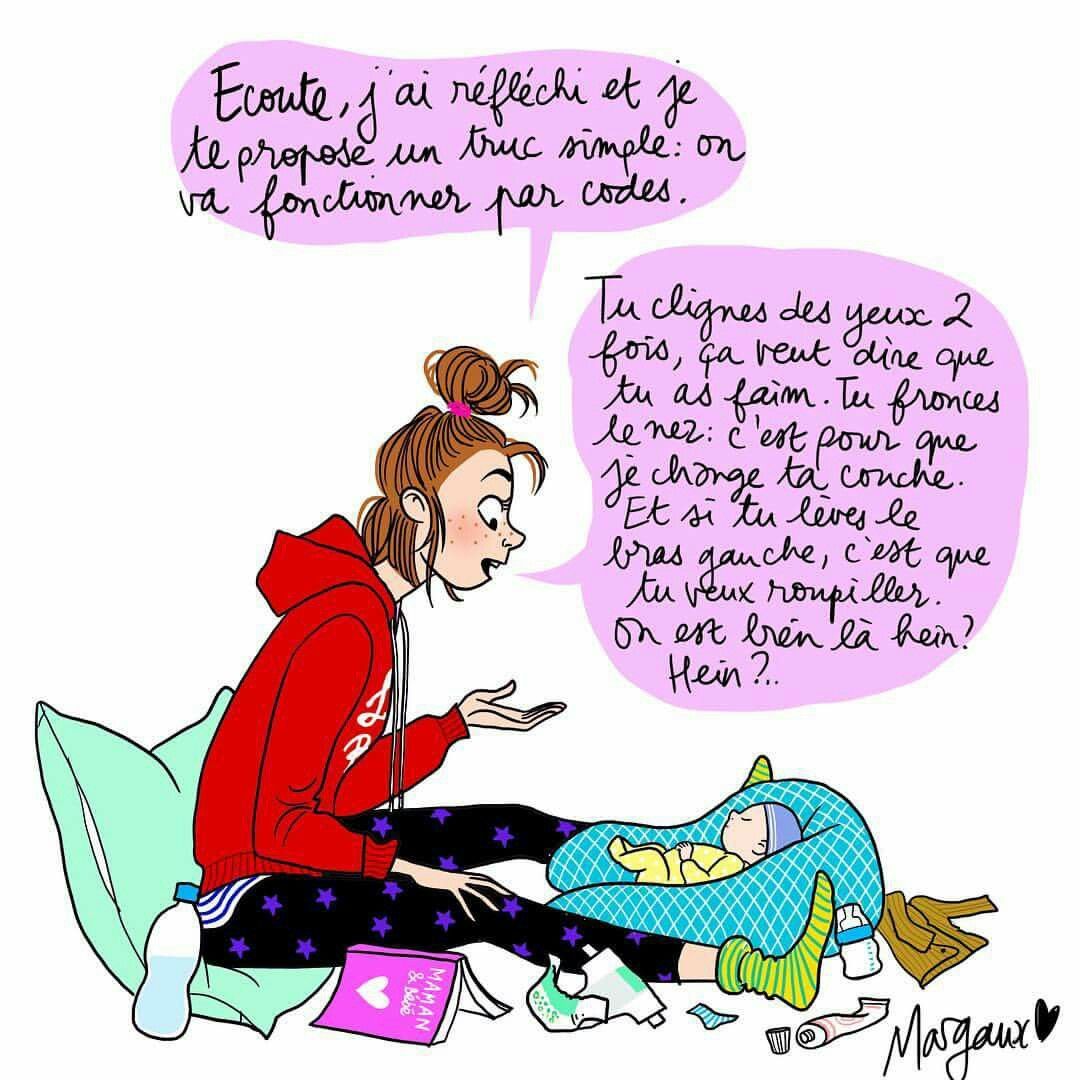 Ecoute, j'ai réfléchi et je
te propose un truc simple: on
va fonctionner par codes.
Tu clignes des yeux 2
fois, ça veut dire que
tu as faim. Tu fronces
le nez: c'est pour que
je change ta couche.
Et si tu lèves le
bras gauche, c'est que
tu veux roupiller.
On est bien là hein?
Hein?..
MAMAN
& Bébé
Margaux